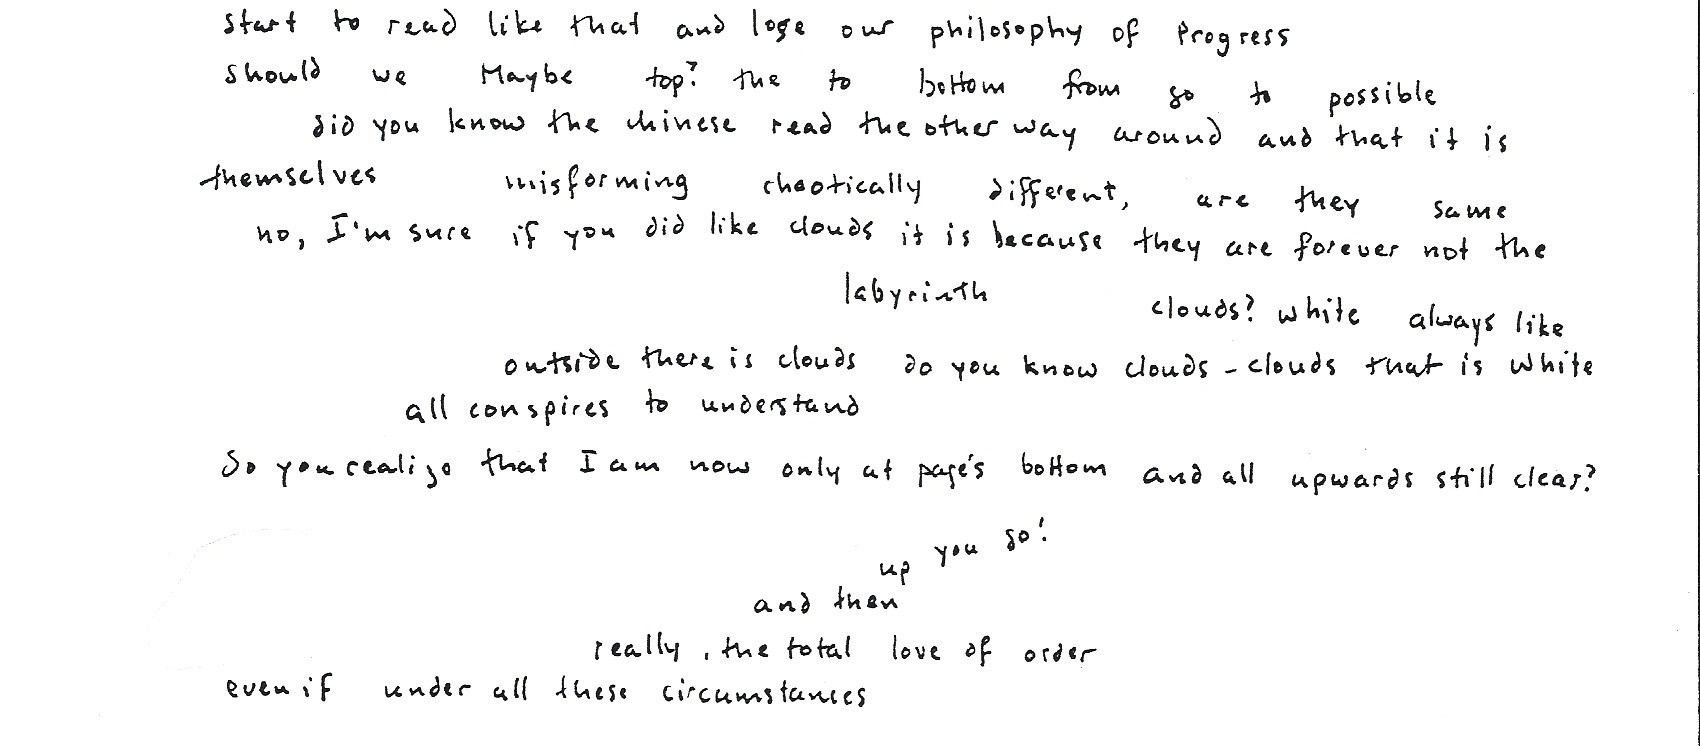 start to read like that and lose our philosophy of Progress
should we Maybe top? the to bottom from go to possible
did you know the chinese read the other way around and that it is
themselves misforming chaotically different, are they same
no, I'm sure if you did like clouds it is because they are forever not the
labyrinth clouds? white always like
outside there is clouds do you know clouds - clouds that is white
all conspires to understand
So you realize that I am now only at page's bottom and all upwards still clear?
up you go!
and then
really, the total love of order
even if under all these circumstances